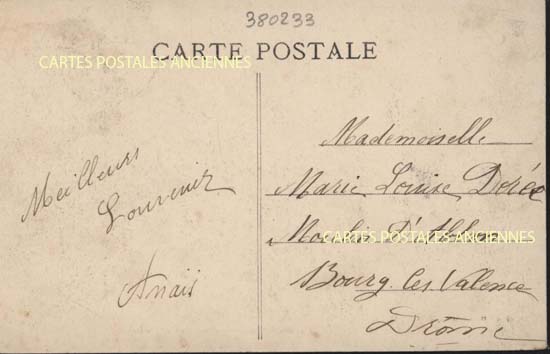 380233
CARTE POSTALE
CARTES POSTALES ANCIENNES
Meilleurs
Souvenir
Anaïs
Mademoiselle
Marie Louise Dorée
Moulin
CARTES POSTALES ANCIENNES
Bourg les Valence
Drôme